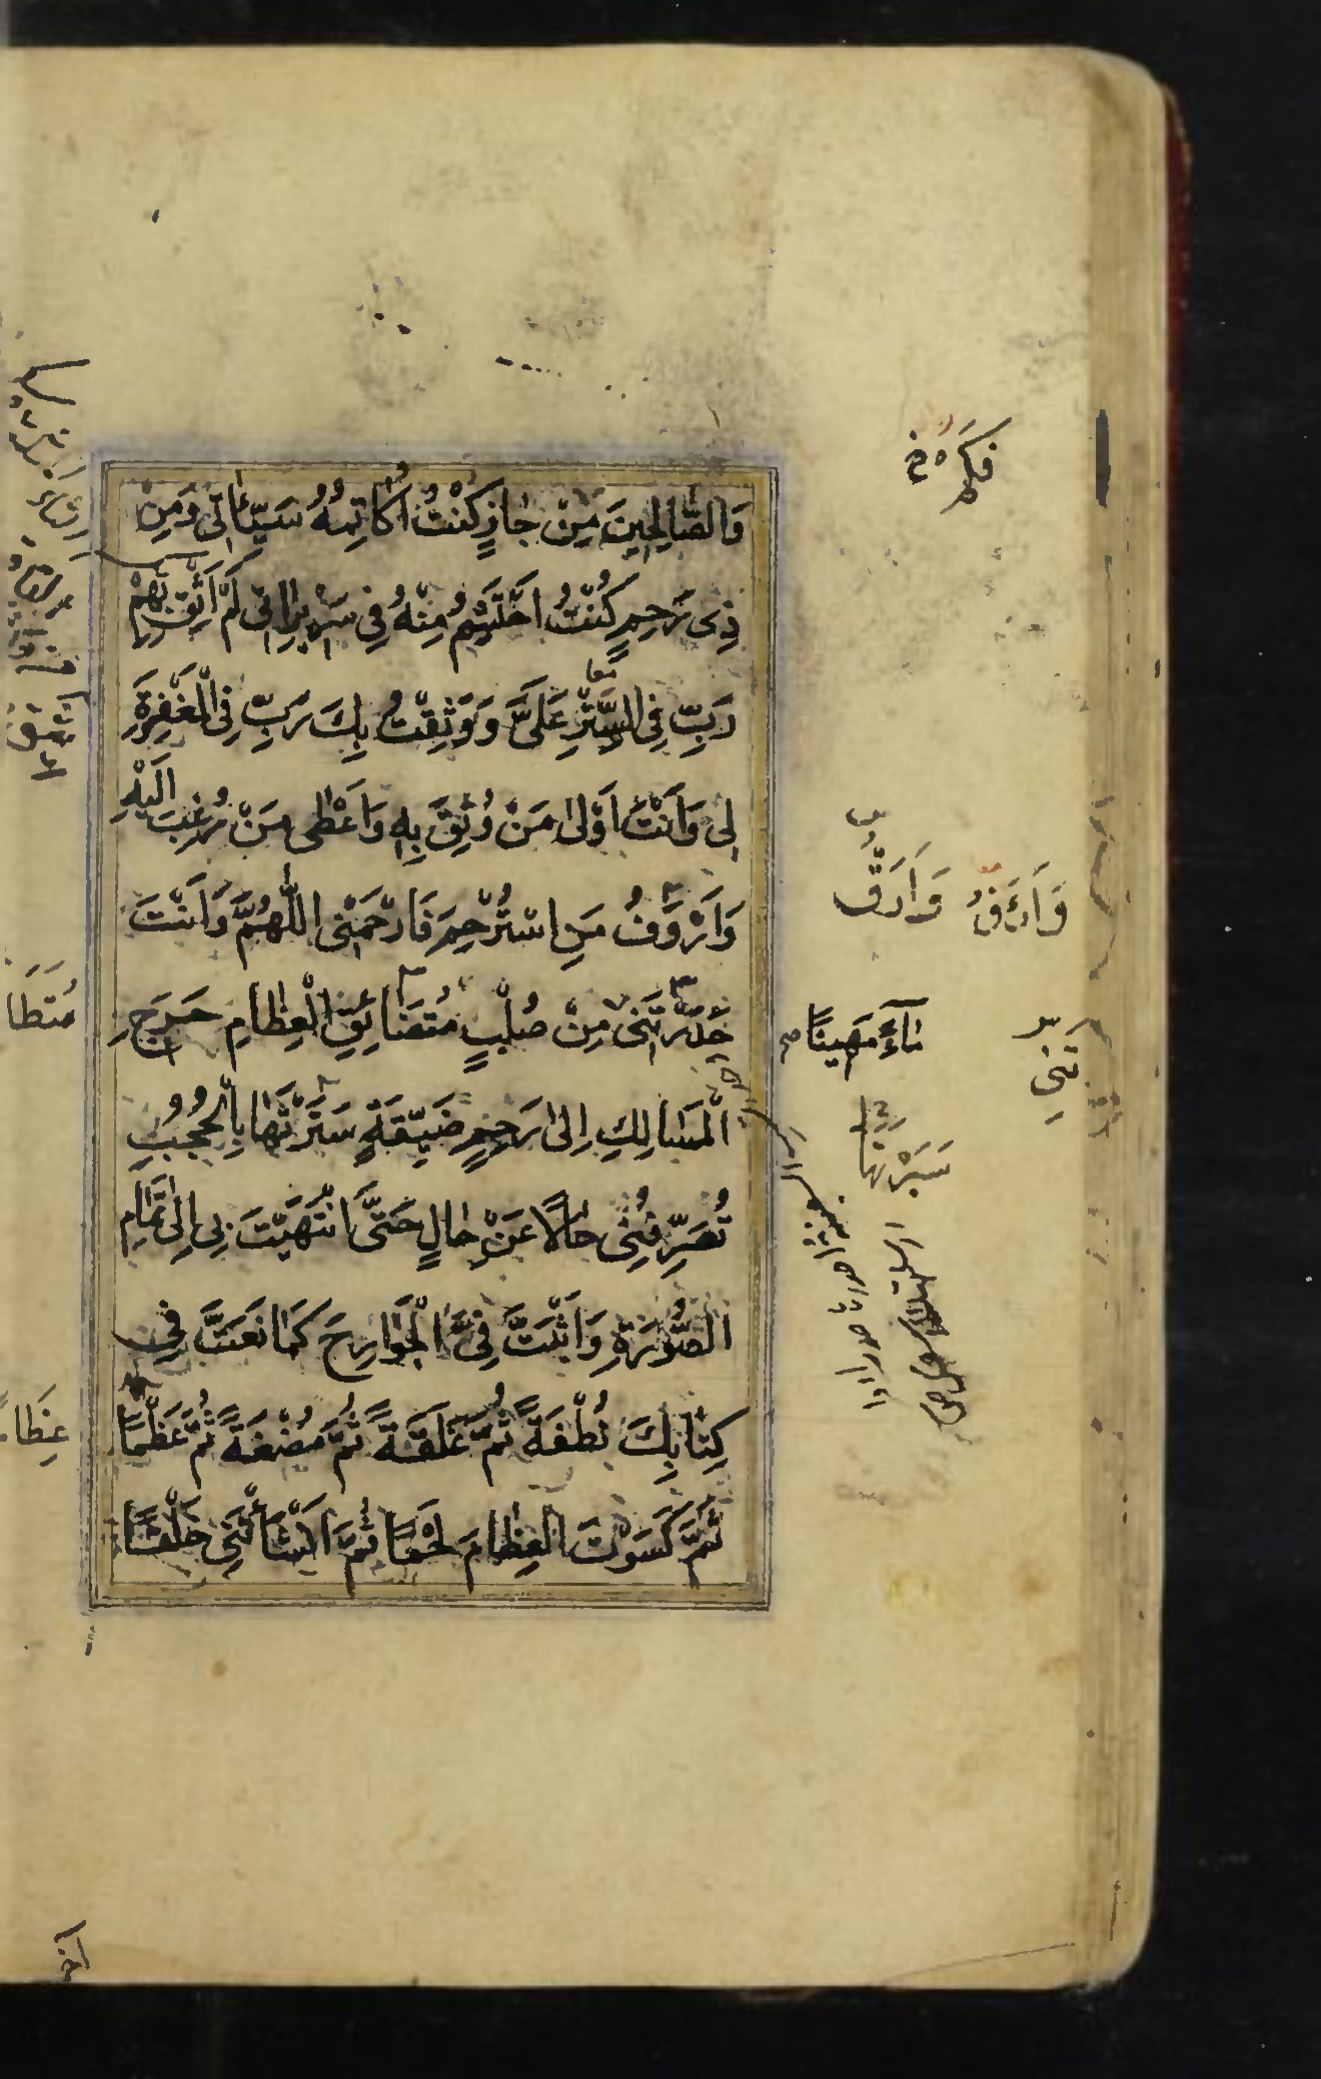 وَالصَّالِحِينَ مِنْ جَارٍ كُنْتُ أُكَاتِمُهُ سَيِّئَاتِي وَمِنْ
ذِي رَحِمٍ كُنْتُ احْتَشِمُ مِنْهُ فِي سَرِيرَاتِي لَمْ أَثِقْ بِهِمْ
رَبِّ فِي السِّتْرِ عَلَيَّ وَوَثِقْتُ بِكَ رَبِّ فِي الْمَغْفِرَةِ
لِي وَأَنْتَ أَوْلَى مَنْ وُثِقَ بِهِ وَأَعْطَى مَنْ رُغِبَ إِلَيْهِ
وَأَرْوَفُ مَنِ اسْتُرْحِمَ فَارْحَمْنِي اللَّهُمَّ وَأَنْتَ
حَدَّرْتَنِي مِنْ صُلْبٍ مُتَضَائِقِ الْعِظَامِ حَرِجِ
الْمَسَالِكِ إِلَى رَحِمٍ ضَيِّقَةٍ سَتَرْتَهَا بِالْحُجُبِ
تُصَرِّفُنِي حَالًا عَنْ حَالٍ حَتَّى انْتَهَيْتَ بِي إِلَى تَمَامِ
الصُّورَةِ وَأَثْبَتَّ فِيَّ الْجَوَارِحَ كَمَا نَعَتَّ فِي
كِتَابِكَ نُطْفَةً ثُمَّ عَلَقَةً ثُمَّ مُضْغَةً ثُمَّ عَظْمًا
ثُمَّ كَسَوْتَ الْعِظَامَ لَحْمًا ثُمَّ أَنْشَأْتَنِي خَلْقًا
وَأَرْءَفُ
مَاءً مَهِينًا
سَتَرْتَهَا